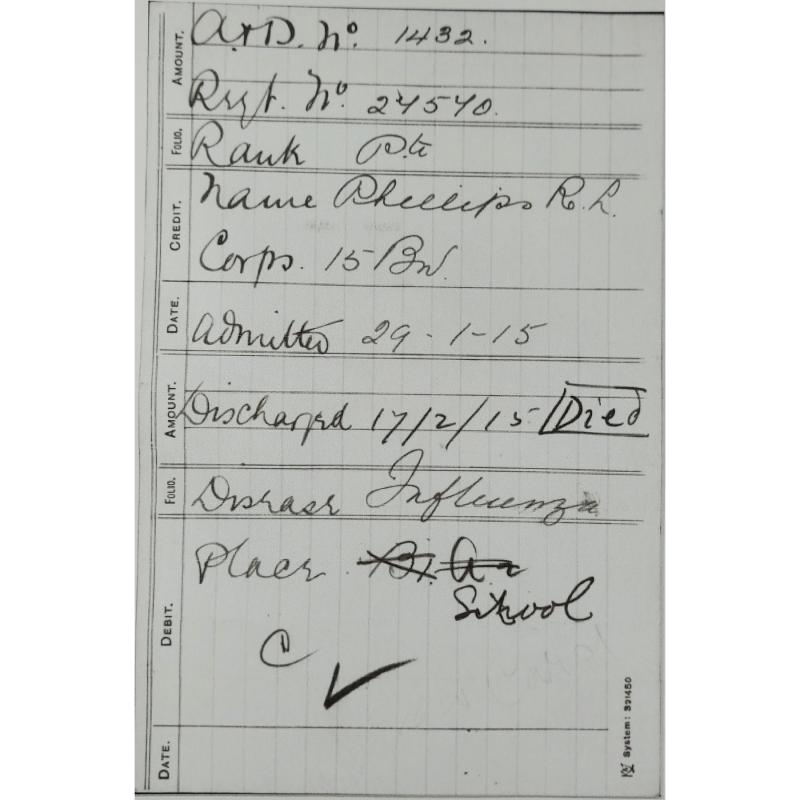 A&D. No. 1432.
Regt. No. 24540.
Rank Pte
Name Phillips R. L.
Corps. 15 Bn.
Admitted 29-1-15
Discharged 17/2/15 Died
Disease Influenza
Place
School
C
AMOUNT.
FOLIO.
CREDIT.
DATE.
AMOUNT.
FOLIO.
DEBIT.
DATE.
System: 391450